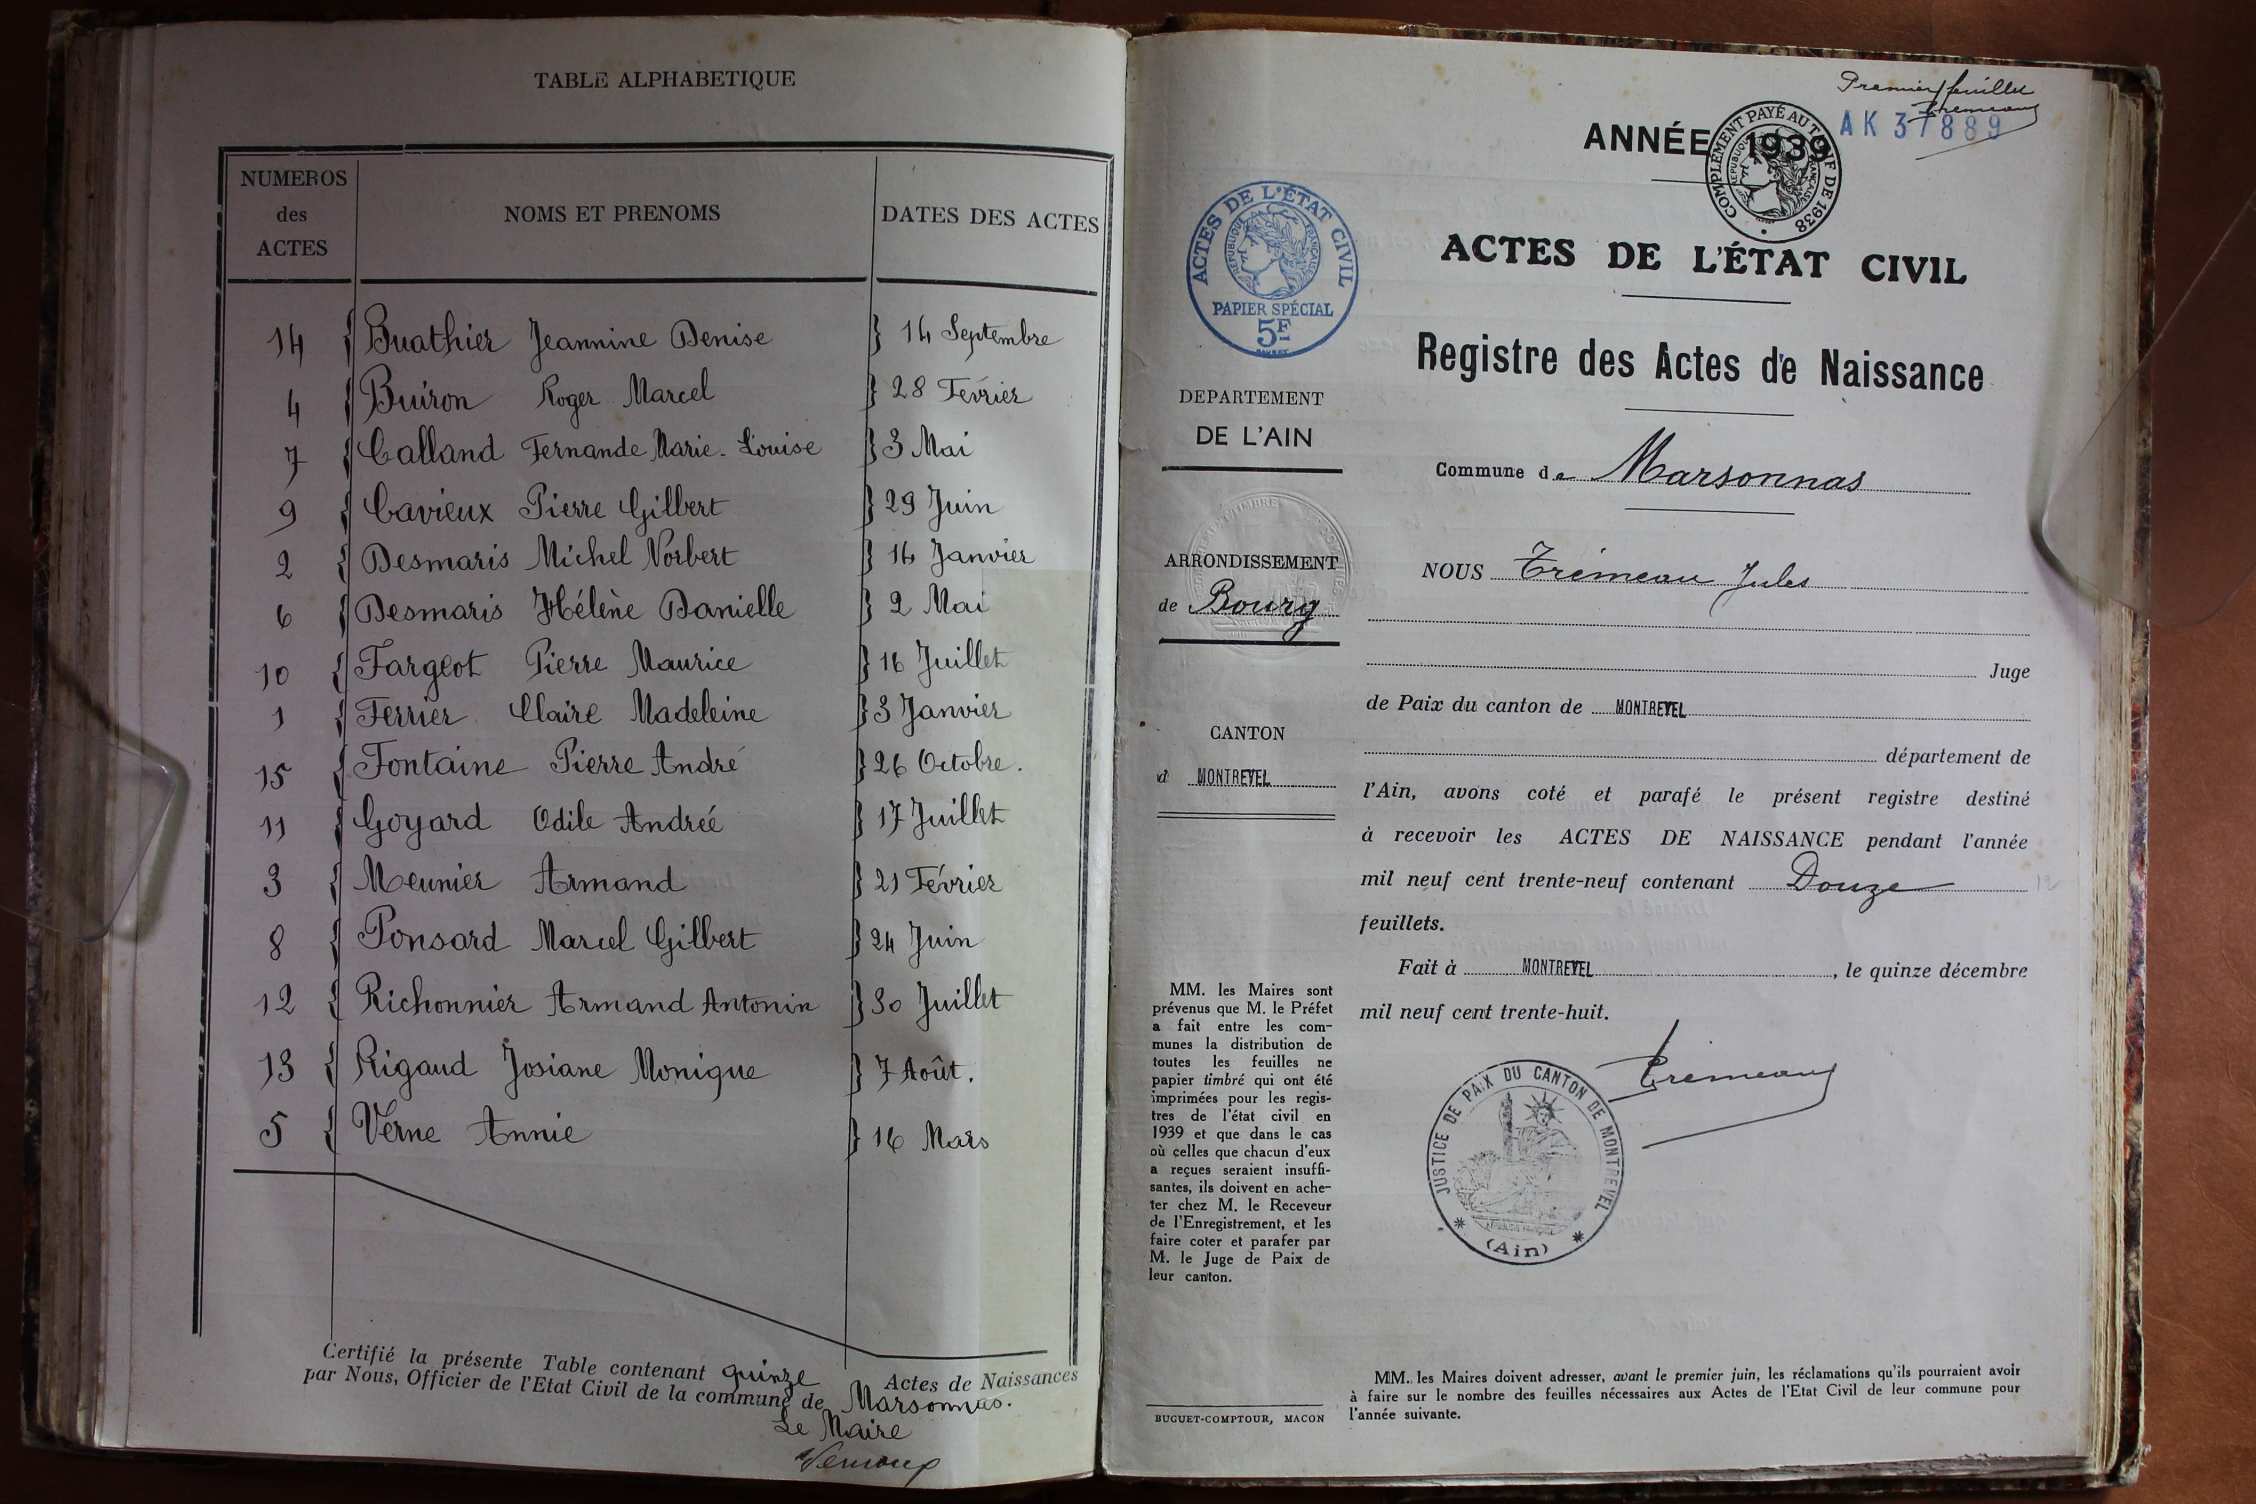 TABLE ALPHABETIQUE
NUMEROS des ACTES
NOMS ET PRENOMS
DATES DES ACTES
14 { Buathier Jeannine Denise } 14 Septembre
4 { Buiron Roger Marcel } 28 Février
7 { Calland Fernande Marie-Louise } 3 Mai
9 { Cavieux Pierre Gilbert } 29 Juin
2 { Desmaris Michel Norbert } 14 Janvier
6 { Desmaris Hélène Danielle } 2 Mai
10 { Fargeot Pierre Maurice } 16 Juillet
1 { Ferrier Claire Madeleine } 3 Janvier
15 { Fontaine Pierre André } 26 Octobre.
11 { Goyard Odile Andrée } 17 Juillet
3 { Meunier Armand } 21 Février
8 { Ponsard Marcel Gilbert } 24 Juin
12 { Richonnier Armand Antonin } 30 Juillet
13 { Rigaud Josiane Monique } 7 Août.
5 { Verne Annie } 16 Mars
Certifié la présente Table contenant quinze Actes de Naissances
par Nous, Officier de l'Etat Civil de la commune de Marsonnas.
Le Maire
Premier feuillet
Trémeau
AK 37889
ANNÉE 1939
COMPLÉMENT PAYÉ AU TARIF DE 1938
RÉPUBLIQUE FRANÇAISE
ACTES DE L'ÉTAT CIVIL
RÉPUBLIQUE FRANÇAISE
PAPIER SPÉCIAL
5F
ACTES DE L'ÉTAT CIVIL
Registre des Actes de Naissance
DEPARTEMENT
DE L'AIN
Commune de Marsonnas
ARRONDISSEMENT
de Bourg
CANTON
d MONTREVEL
NOUS Trémeau Jules
Juge
de Paix du canton de MONTREVEL
département de
l'Ain, avons coté et parafé le présent registre destiné
à recevoir les ACTES DE NAISSANCE pendant l'année
mil neuf cent trente-neuf contenant Douze 12
feuillets.
Fait à MONTREVEL, le quinze décembre
mil neuf cent trente-huit.
Trémeau
JUSTICE DE PAIX DU CANTON DE MONTREVEL
* (Ain) *
MM. les Maires sont
prévenus que M. le Préfet
a fait entre les com-
munes la distribution de
toutes les feuilles ne
papier timbré qui ont été
imprimées pour les regis-
tres de l'état civil en
1939 et que dans le cas
où celles que chacun d'eux
a reçues seraient insuffi-
santes, ils doivent en ache-
ter chez M. le Receveur
de l'Enregistrement, et les
faire coter et parafer par
M. le Juge de Paix de
leur canton.
BUGUET-COMPTOUR, MACON
MM. les Maires doivent adresser, avant le premier juin, les réclamations qu'ils pourraient avoir
à faire sur le nombre des feuilles nécessaires aux Actes de l'Etat Civil de leur commune pour
l'année suivante.